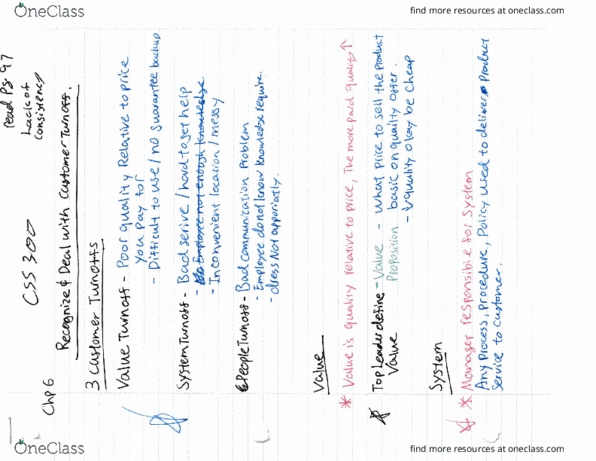 OneClass
find more resources at oneclass.com
read Pg 97
Lack of
Consistency
CSS 300
Chp 6
Recognize & Deal with Customer Turnoff.
3 Customer Turnoffs
Value Turnoff - Poor quality Relative to price
you Pay for
- Difficult to use / no guarantee backup
System Turnoff - Bad serive / hard to get help
- Employee not enough knowledge
- Inconvenient location / messy
People Turnoff - Bad communication Problem
- Employee do not know knowledge require.
- dress Not approriatly.
Value
* Value is quality relative to price, The more paid quality ↑
Top Leader define - Value - what Price to sell the Product
Value Proposition basic on quality offer.
- Valuality okay be cheap
System
* Manager responsible for System
Any Process, Procedure, Policy used to deliver Product
Service to Customer.
OneClass
find more resources at oneclass.com